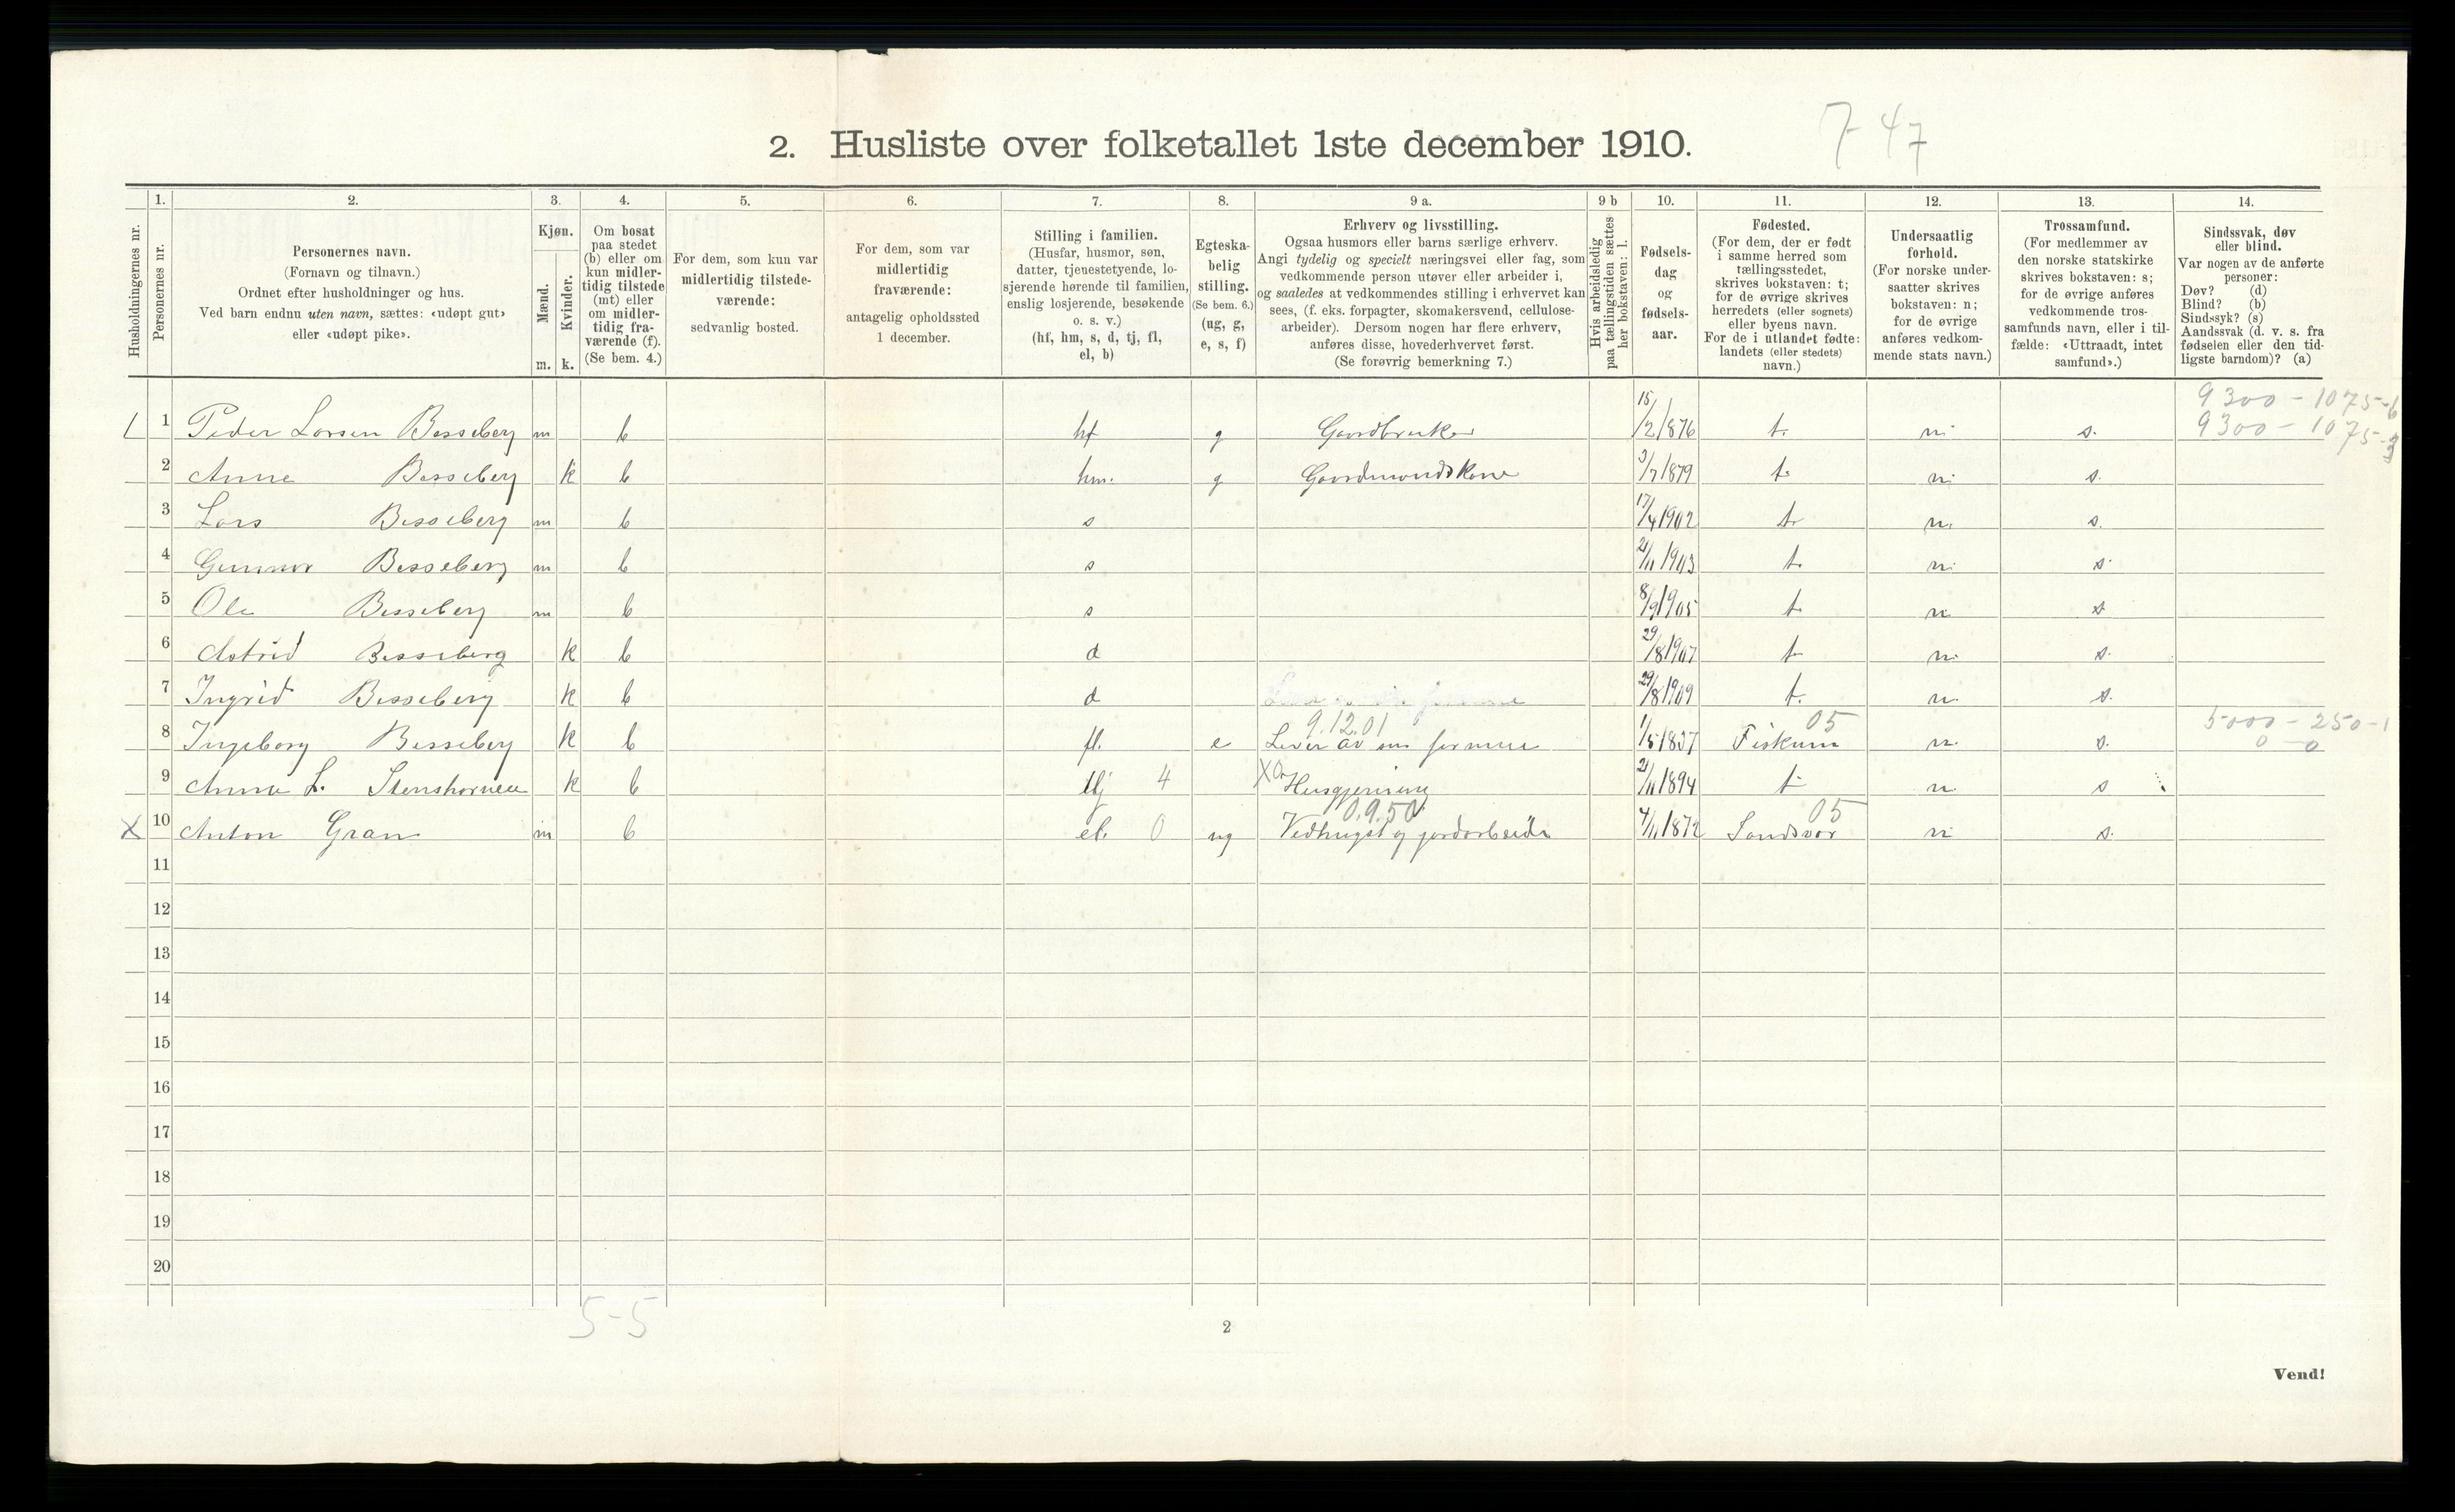 7-47
2. Husliste over folketallet 1ste december 1910.
Husholdningernes nr.
1. Personernes nr.
2.
Personernes navn.
(Fornavn og tilnavn.)
Ordnet efter husholdninger og hus.
Ved barn endnu uten navn, sættes: «udøpt gut»
eller «udøpt pike».
3.
Kjøn.
Mænd. Kvinder.
m. k.
4.
Om bosat
paa stedet
(b) eller om
kun midler-
tidig tilstede
(mt) eller
om midler-
tidig fra-
værende (f).
(Se bem. 4.)
5.
For dem, som kun var
midlertidig tilstede-
værende:
sedvanlig bosted.
6.
For dem, som var
midlertidig
fraværende:
antagelig opholdssted
1 december.
7.
Stilling i familien.
(Husfar, husmor, søn,
datter, tjenestetyende, lo-
sjerende hørende til familien,
enslig losjerende, besøkende
o. s. v.)
(hf, hm, s, d, tj, fl,
el, b)
8.
Egteska-
belig
stilling.
(Se bem. 6.)
(ug, g,
e, s, f)
9 a.
Erhverv og livsstilling.
Ogsaa husmors eller barns særlige erhverv.
Angi tydelig og specielt næringsvei eller fag, som
vedkommende person utøver eller arbeider i,
og saaledes at vedkommendes stilling i erhvervet kan
sees, (f. eks. forpagter, skomakersvend, cellulose-
arbeider). Dersom nogen har flere erhverv,
anføres disse, hovederhvervet først.
(Se forøvrig bemerkning 7.)
9 b
Hvis arbeidsledig
paa tællingstiden sættes
her bokstaven: l.
10.
Fødsels-
dag
og
fødsels-
aar.
11.
Fødested.
(For dem, der er født
i samme herred som
tællingsstedet,
skrives bokstaven: t;
for de øvrige skrives
herredets (eller sognets)
eller byens navn.
For de i utlandet fødte:
landets (eller stedets)
navn.)
12.
Undersaatlig
forhold.
(For norske under-
saatter skrives
bokstaven: n;
for de øvrige
anføres vedkom-
mende stats navn.)
13.
Trossamfund.
(For medlemmer av
den norske statskirke
skrives bokstaven: s;
for de øvrige anføres
vedkommende tros-
samfunds navn, eller i til-
fælde: «Uttraadt, intet
samfund».)
14.
Sindssvak, døv
eller blind.
Var nogen av de anførte
personer:
Døv? (d)
Blind? (b)
Sindssyk? (s)
Aandssvak (d. v. s. fra
fødselen eller den tid-
ligste barndom)? (a)
9300 - 1075-6
1 Peder Larsen Besseberg m b hf g Gaardbruker 15/2 1876 t. n. s. 9300 - 1075-3
2 Anne Besseberg k b hm. g Gaardmandskone 3/7 1879 t. n. s.
3 Lars Besseberg m b s 17/4 1902 t. n. s.
4 Gunnar Besseberg m b s 21/11 1903 t. n. s.
5 Ole Besseberg m b s 8/9 1905 t. n. s
6 Astrid Besseberg k b d 29/8 1907 t. n. s.
7 Ingrid Besseberg k b d 29/8 1909 t. n. s.
9.12.01 05 5000 - 250-1
8 Ingeborg Besseberg k b fl. e Lever av sin formue 1/5 1837 Fiskum n. s. 0 - 0
9 Anne L. Stenshornen k b tj 4 Husgjerning 21/11 1894 t n. s
0.9.50 05
X 10 Anton Gran m b el. 0 ug Vedhugst og jordarbeide 4/11 1872 Sandsvær n s.
11
12
13
14
15
16
17
18
19
20
5-5
2
Vend!